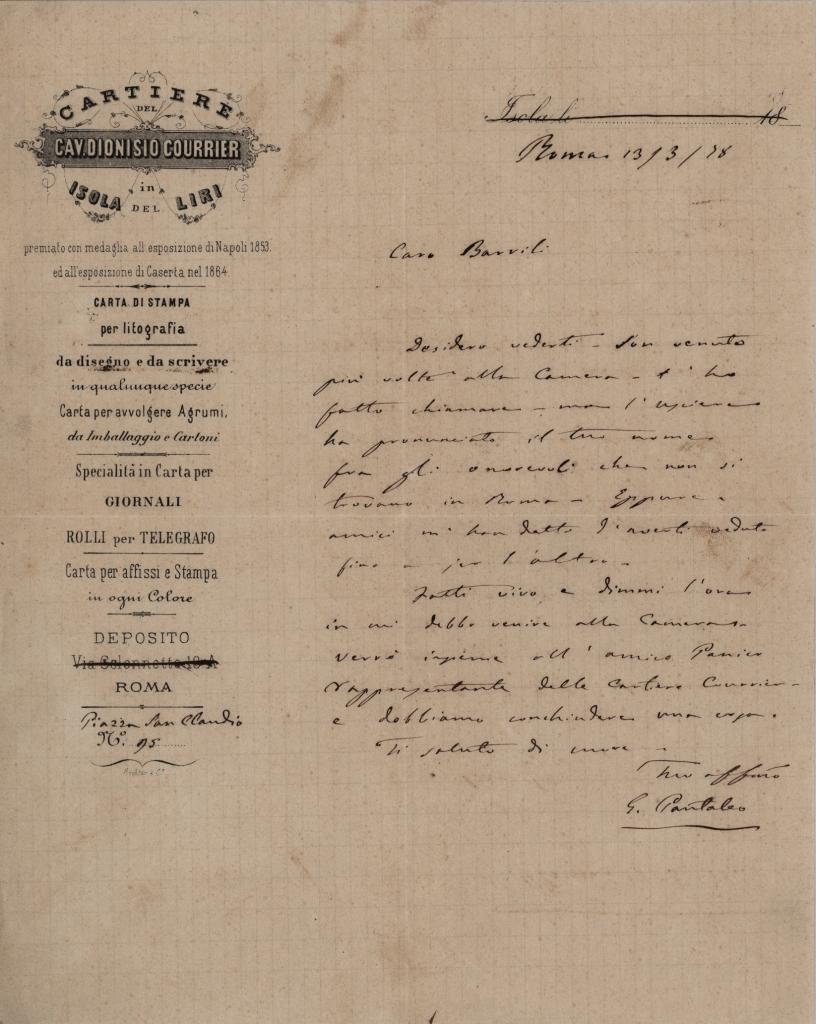 CARTIERE
DEL
CAV. DIONISIO COURRIER
in
ISOLA DEL LIRI
premiato con medaglia all'esposizione di Napoli 1853.
ed all'esposizione di Caserta nel 1864.
CARTA DI STAMPA
per litografia
da disegno e da scrivere
in qualunque specie
Carta per avvolgere Agrumi,
da Imballaggio e Cartoni
Specialità in Carta per
GIORNALI
ROLLI per TELEGRAFO
Carta per affissi e Stampa
in ogni Colore
DEPOSITO
Via Colonnette
ROMA
Piazza San Claudio
N.º 95
Isola li 18
Roma 13/3/78
Caro Barrili
Desidero vederti - Son venuto
più volte alla Camera - t'ho
fatto chiamare - ma l'usciere
ha pronunciato il tuo nome
fra gli onorevoli che non si
trovano in Roma - Eppure
amici m'han detto d'averti veduto
fino a jer l'altro.
Fatti vivo e dimmi l'ora
in cui debbo venire alla Camera.
Verrò insieme all'amico Panier
rappresentante delle Cartiere Courrier -
e dobbiamo conchiudere una cosa.
Ti saluto di cuore -
Tuo affmo
G. Pantaleo